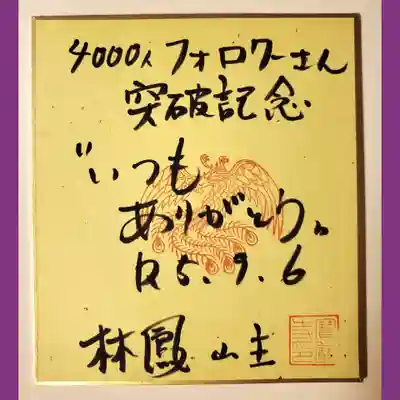 4000人フォロワーさん
突破記念
"いつも
ありがとう。
R5.9.6
林鳳 山主